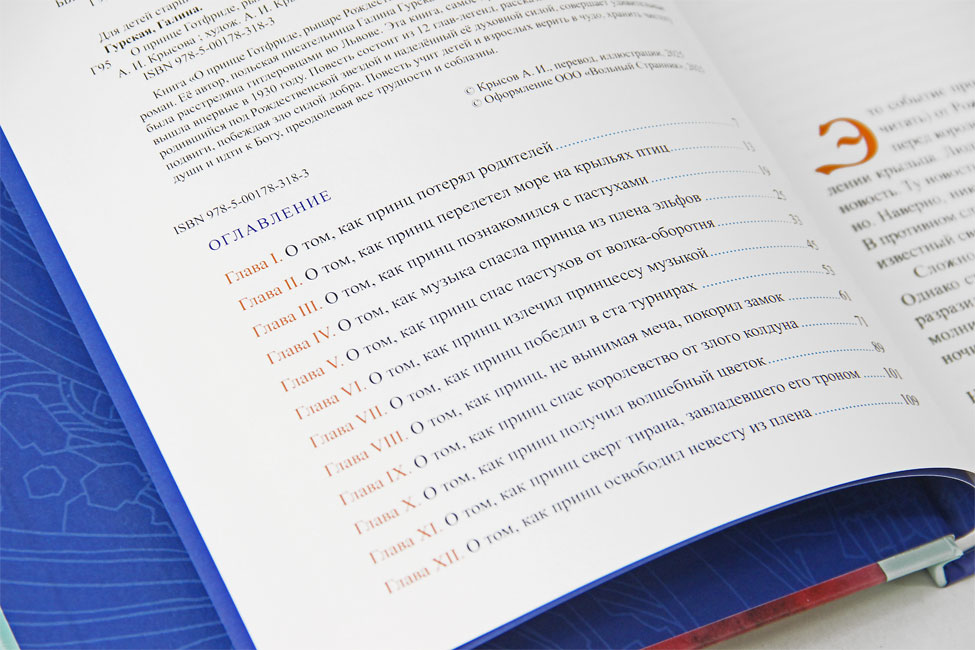 Для детей старш
Гурская, Галина.
Г95
О принце Готфриде, рыцаре Рождест
А. И. Крысова ; худож. А. И. К
ISBN 978-5-00178-318-3
Книга «О принце Готфриде, рыцаре Рождест
роман. Её автор, польская писательница Галина Гурска
была расстреляна гитлеровцами во Львове. Эта книга, самое
вышла впервые в 1930 году. Повесть состоит из 12 глав-легенд, рассказ
родившийся под Рождественской звездой и наделённый её духовной силой, совершает удивительные
подвиги, побеждая зло силой добра. Повесть учит детей и взрослых верить в чудо, хранить чистоту
души и идти к Богу, преодолевая все трудности и соблазны.
© Крысов А. И., перевод, иллюстрации, 2025
© Оформление ООО «Вольный Странник», 2025
ISBN 978-5-00178-318-3
ОГЛАВЛЕНИЕ
Глава I. О том, как принц потерял родителей 7
Глава II. О том, как принц перелетел море на крыльях птиц 13
Глава III. О том, как принц познакомился с пастухами 19
Глава IV. О том, как музыка спасла принца из плена эльфов 25
Глава V. О том, как принц спас пастухов от волка-оборотня 33
Глава VI. О том, как принц излечил принцессу музыкой 45
Глава VII. О том, как принц победил в ста турнирах 53
Глава VIII. О том, как принц, не вынимая меча, покорил замок 61
Глава IX. О том, как принц спас королевство от злого колдуна 71
Глава X. О том, как принц получил волшебный цветок 89
Глава XI. О том, как принц сверг тирана, завладевшего его троном 101
Глава XII. О том, как принц освободил невесту из плена 109
Это событие пр
читать) от Рож
перед корол
дении крыльца. Люд
новость. Ту новост
но. Наверно, ник
В противном сл
известный св
Сложно
Однако с
разрази
молни
ночи